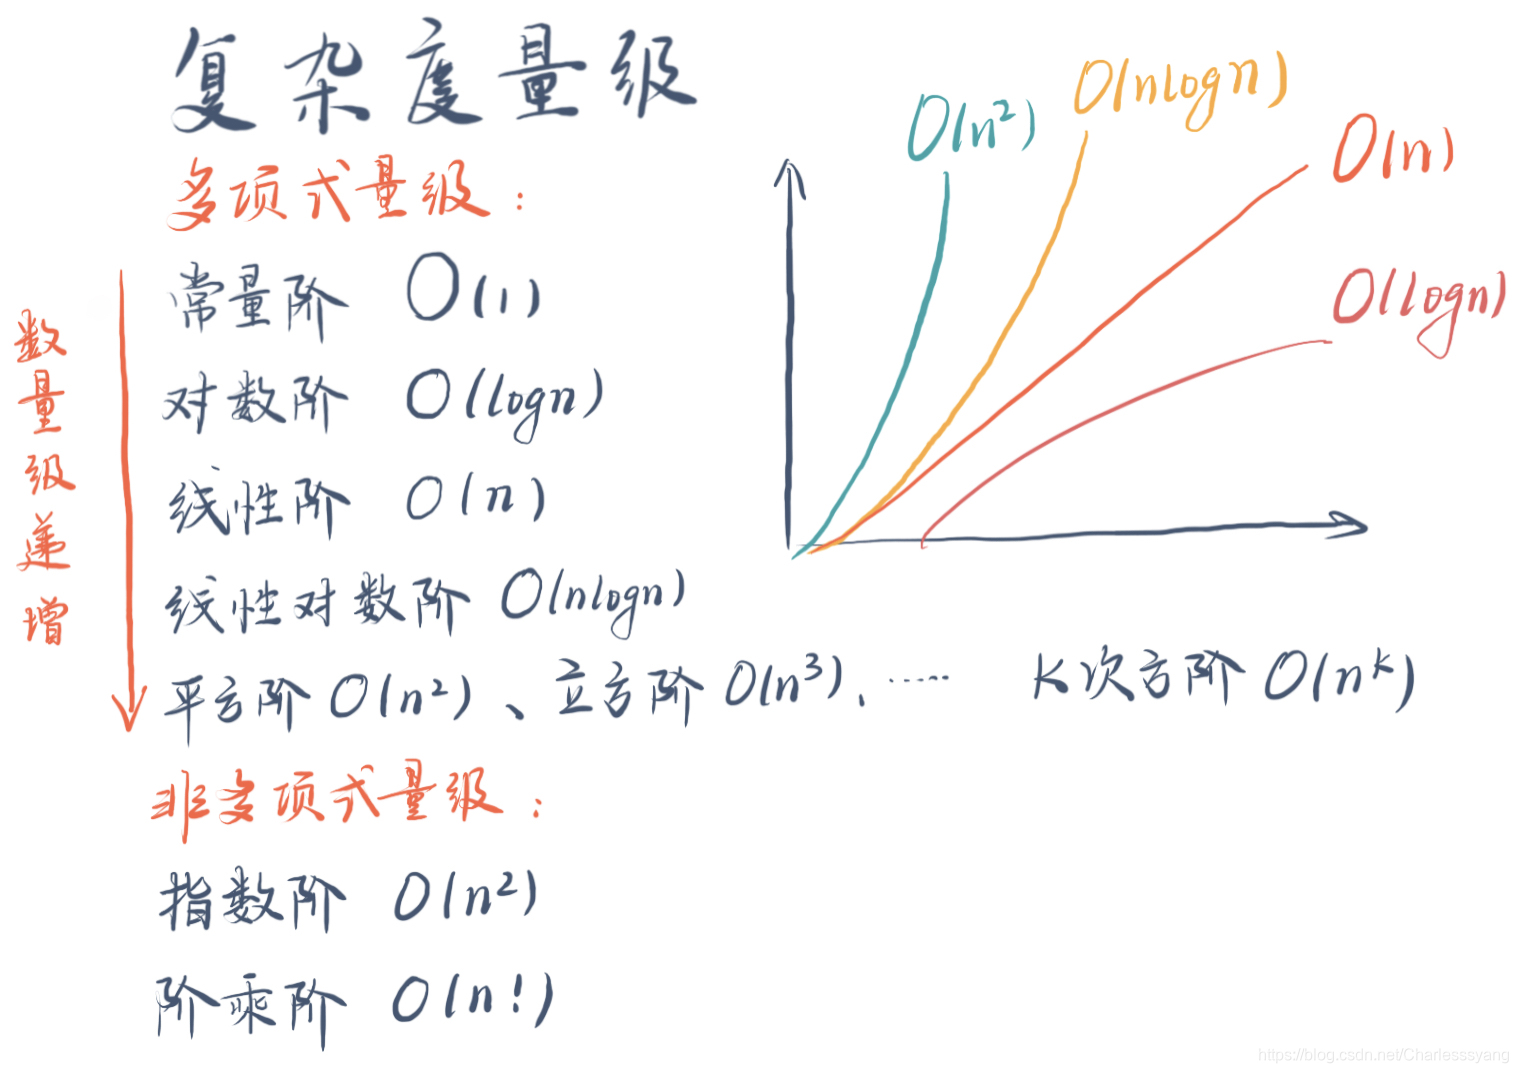 复杂度量级
多项式量级：
常量阶 O(1)
对数阶 O(logn)
线性阶 O(n)
线性对数阶 O(nlogn)
平方阶 O(n²)、立方阶 O(n³)、…… K次方阶 O(nᵏ)
非多项式量级：
指数阶 O(n²)
阶乘阶 O(n!)
数量级递增
O(n²)
O(nlogn)
O(n)
O(logn)
https://blog.csdn.net/Charlesssyang